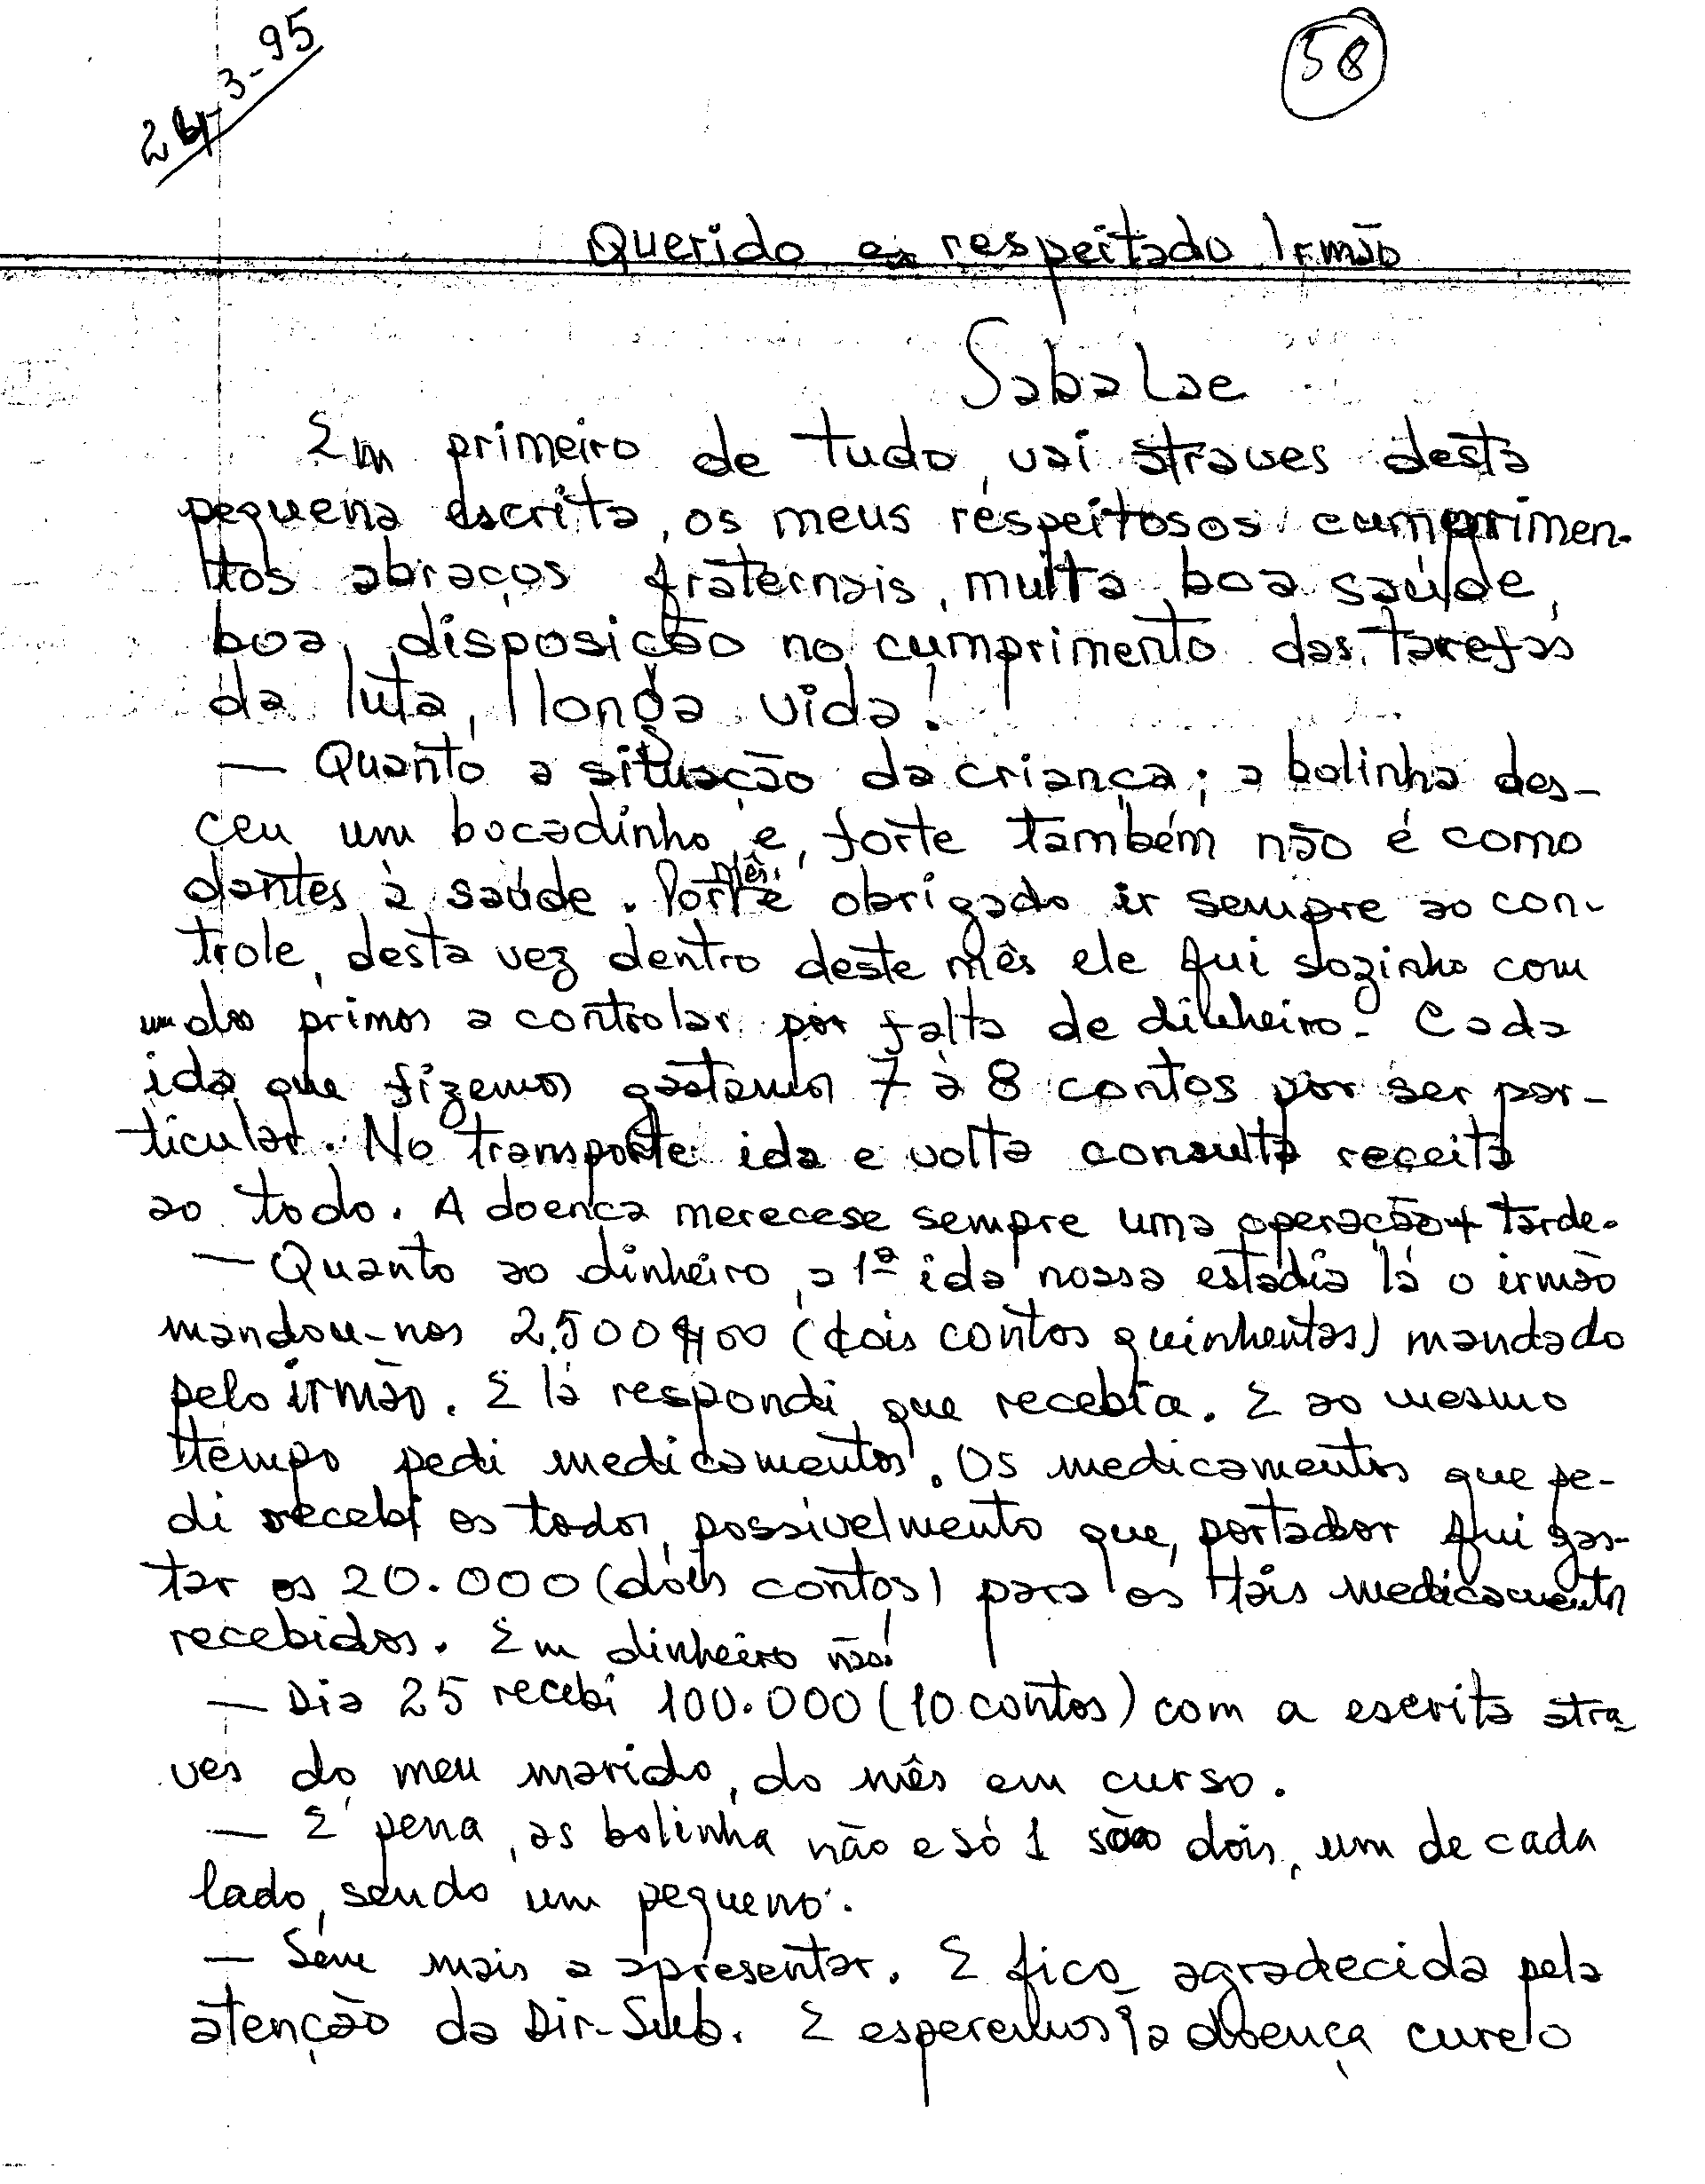 24-3-95
58
Querido e respeitado Irmão
Sabalae
Em primeiro de tudo, vai atraves desta
pequena escrita, os meus respeitosos cumprimen-
tos abraços fraternais, muita boa saúde,
boa disposição no cumprimento das tarefas
da luta, longa vida!
— Quanto a situação da criança; a bolinha des-
ceu um bocadinho e, forte também não é como
dantes à saúde. Por mês, é obrigado ir sempre ao con-
trole, desta vez dentro deste mês ele fui sozinho com
um dos primos a controlar por falta de dinheiro. Cada
ida que fizemos gastamos 7 à 8 contos por ser par-
ticular. No transporte ida e volta consulta receita
ao todo. A doença merecese sempre uma operação + tarde.
— Quanto ao dinheiro, a 1ª ida nossa estadia lá o irmão
mandou-nos 2.500$00 (dois contos quinhentos) mandado
pelo irmão. E lá respondi que recebia. E ao mesmo
tempo pedi medicamentos. Os medicamentos que pe-
di recebi os todos, possivelmento que, portador fui gas-
tar os 20.000 (dois contos) para os tais medicamentos
recebidos. Em dinheiro não!
— Dia 25 recebi 100.000 (10 contos) com a escrita atra
ves do meu marido, do mês em curso.
— E' pena, as bolinha não e só 1 são dois, um de cada
lado, sendo um pequeno.
— Sem mais a apresentar. E fico agradecida pela
atenção da Dir-Sub. E esperemos a doença curelo